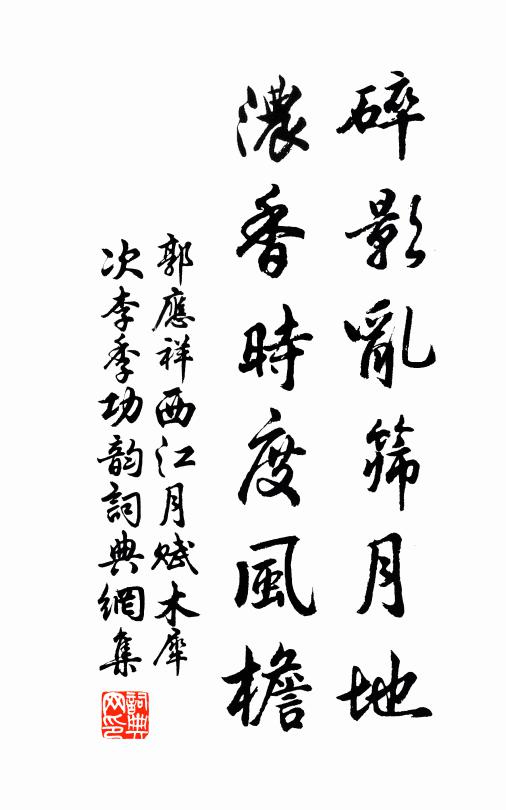 碎影亂篩月地
濃香時度風檐
郭應祥西江月賦木犀
次李季功韵詞典網集
詞典網印